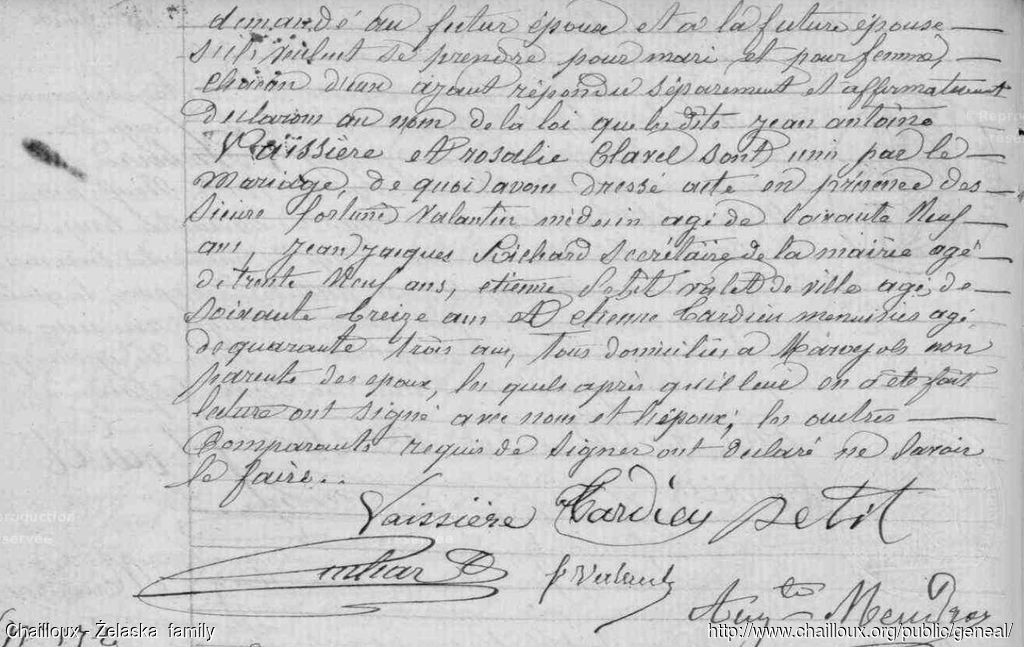 demandé au futur époux et a la future épouse
s'ils veulent se prendre pour mari et pour femme,
chacun d'eux ayant répondu séparement et affirmativement
Declarons au nom de la loi que les dits jean antoine
Vaissière et rosalie Clavel sont unis par le
Mariage, de quoi avons dressé acte en présence des
sieurs fortuné Valantin médecin agé de soixante Neuf
ans, jean jacques Richard Secrétaire de la mairie agé
de trente Neuf ans, etienne Petit valet de ville agé de
soixante treize ans Et etienne Tardieu menuisier agé
de quarante trois ans, tous domiciliés a Marvejols non
parents des epoux, les quels après qu'il leur en a été fait
lecture ont signé avec nous et l'époux; les autres
Comparants requis de signer ont declaré ne savoir
le faire..
Vaissière Tardieu petit
f Valantin
Aug.te
Chailloux - Želaska family
http://www.chailloux.org/public/geneal/